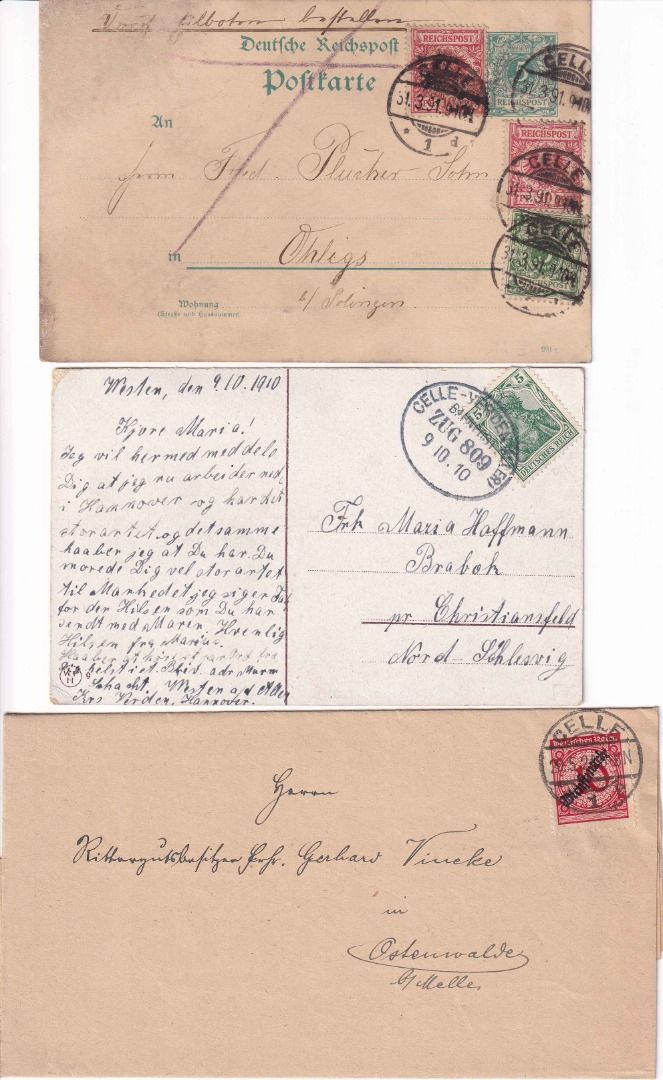 Durch Eilboten bestellen
Deutsche Reichspost
Postkarte
REICHSPOST
REICHSPOST
CELLE
31.3.91.9-10V.
* 1 d
CELLE
31.3.91.9-10V.
An
Herrn Fried. Plücker Sohn
REICHSPOST
CELLE
31.3.91.9-10V.
in Ohligs
b/ Solingen
CELLE
31.3.91.9-10V.
REICHSPOST
Wohnung
(Straße und Hausnummer)
Westen, den 9.10.1910
Kjøre Maria!
Jeg vil hermed meddele
Dig at jeg nu arbeider ned
i Hannover og har det
storartet og det samme
haaber jeg at Du har. Du
morede Dig vel storartet
til Markedet jeg siger Tak
for den Hilsen som Du har
sendt med Maren. Hrenlig
Hilsen fra Marius.
Haaber at høre snart fra
Schacht, Westen a/d Aller
Krs Verden, Hannover.
CELLE-VERDEN (ALLER)
BAHNPOST
ZUG 809
9 10. 10
5
DEUTSCHES REICH
Frk Maria Hoffmann
Brabæk
pr Christiansfeld
Nord-Schlesvig
CELLE
Deutsches Reich
10
Herrn
Rittergutsbesitzer Frhr. Gerhard Vincke
in
Ostenwalde
b/Melle